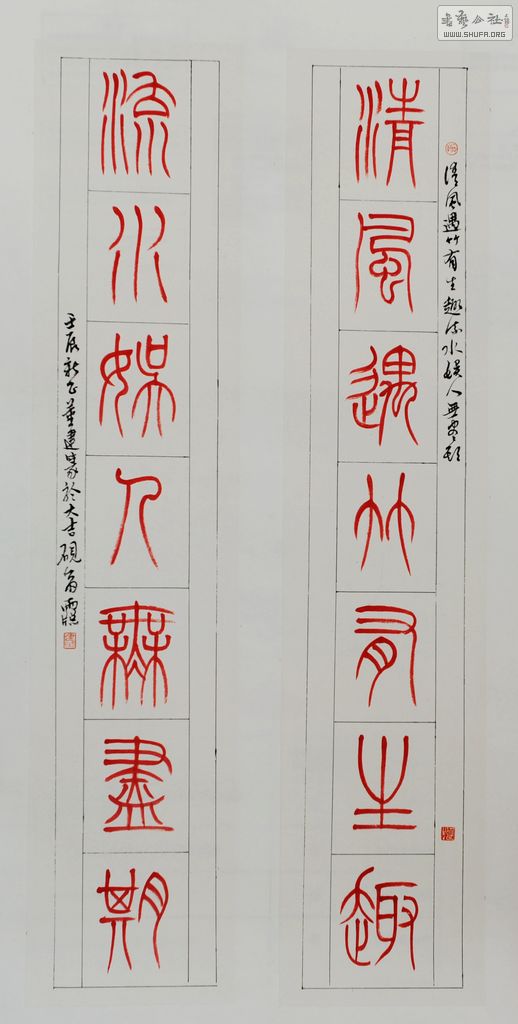 書藝公社
WWW.SHUFA.ORG
清風遇竹有生趣流水娛人無盡期
清風遇竹有生趣
流水娛人無盡期
壬辰新正董建於大吉硯齋